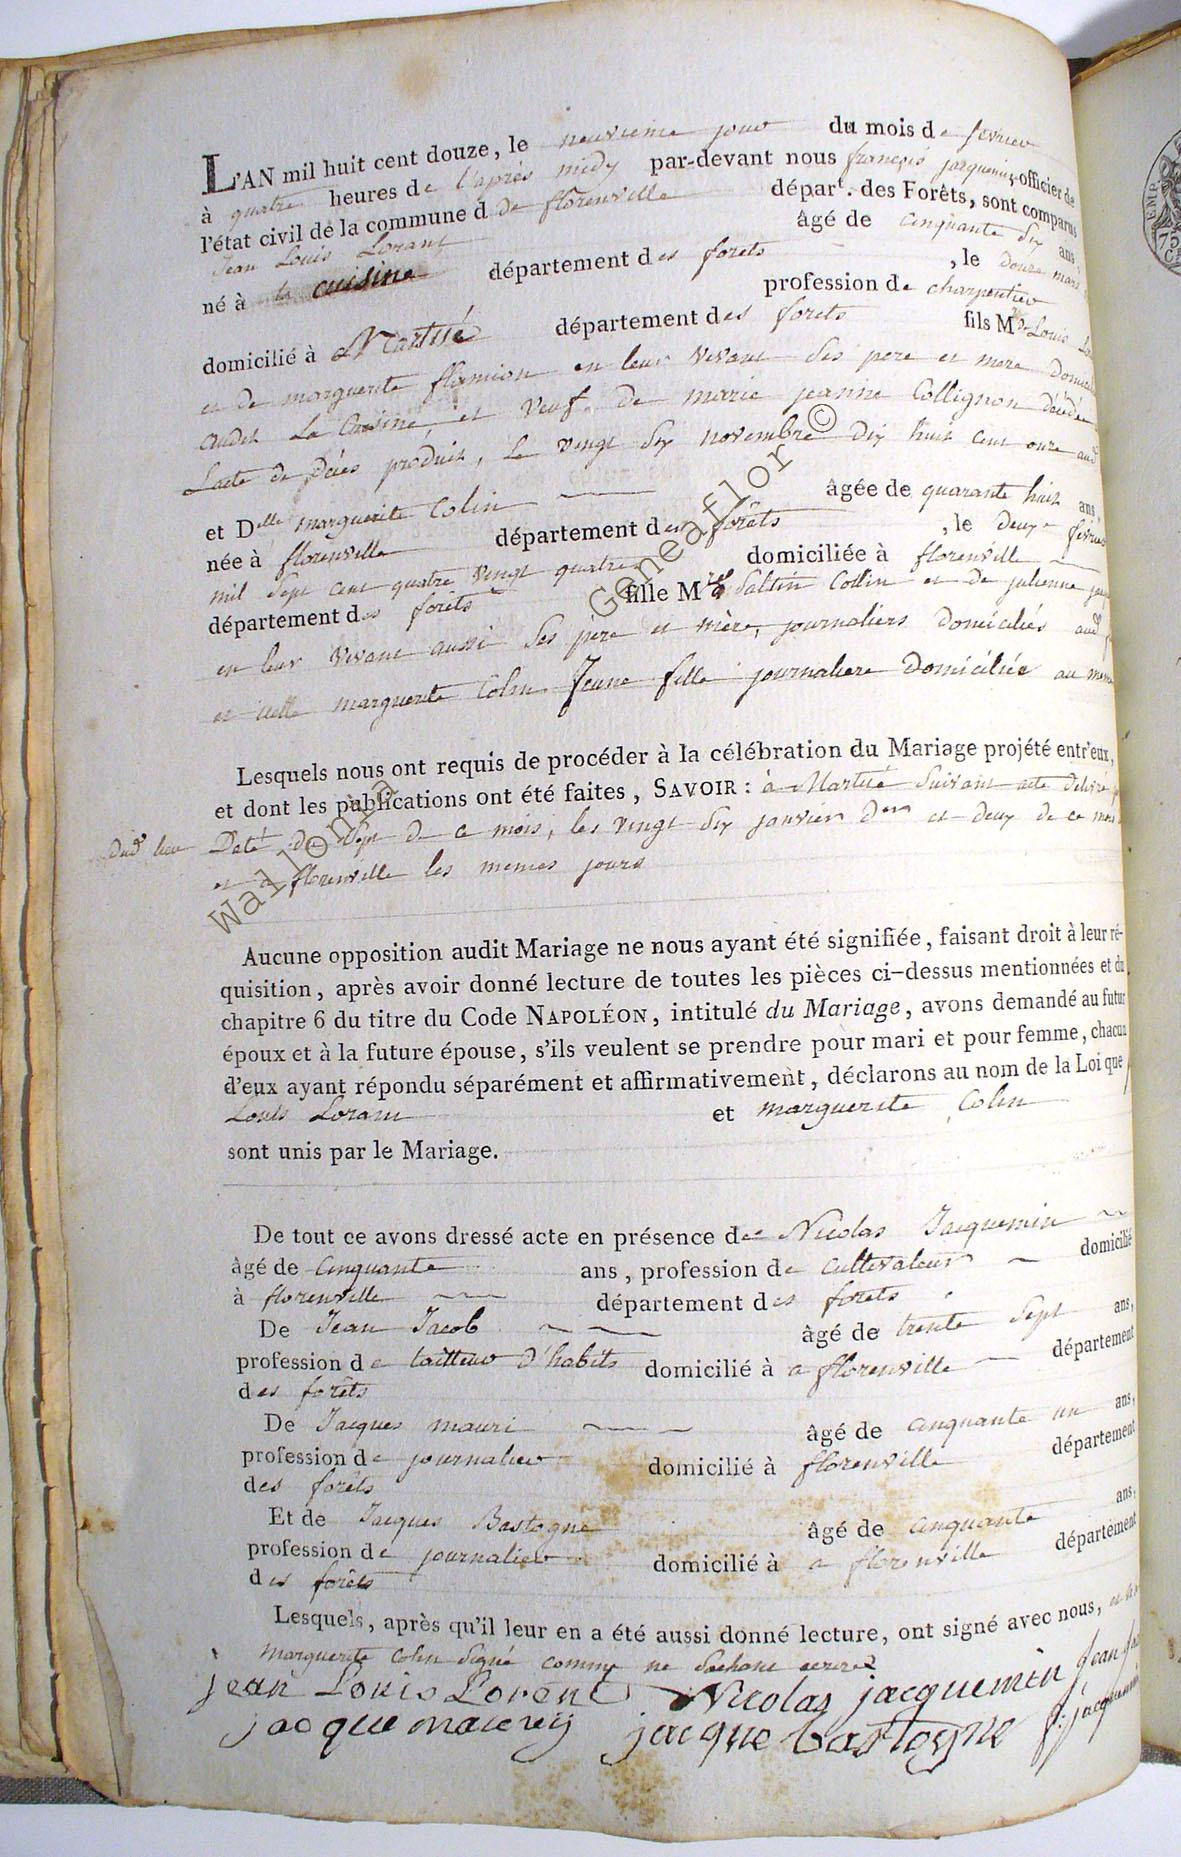 L'AN mil huit cent douze, le neuvieme jour du mois de fevrier
à quatre heures de l'après midy par-devant nous françois jacquemin officier de
l'état civil de la commune d de florenville départ. des Forêts, sont comparus
Jean Louis Lorant âgé de cinquante six ans,
né à la cuisine département des forets, le douze mars
profession de charpentier
domicilié à Martué département des forets fils Mr Louis
et de marguerite flamion en leur vivant ses pere et mere
audit La Cuisine, et veuf de marie jeanne Collignon décédée
Lacte de décès produit, le vingt six novembre dix huit cent onze aud
et Delle marguerite Colin âgée de quarante huit ans,
née à florenville département des forêts, le deux fevrier
mil sept cent quatre vingt quatre domiciliée à florenville
département des forêts fille M Collin et de julienne
en leur vivant aussi ses père et mère, journaliers domiciliés aud
et icelle marguerite Colin Jeune fille journaliere domiciliée au meme
Lesquels nous ont requis de procéder à la célébration du Mariage projété entr'eux,
et dont les publications ont été faites, SAVOIR : à Martué suivant acte délivré
dud lieu Daté du sept de ce mois, les vingt six janvier der et deux de ce mois
et a florenville les memes jours
Aucune opposition audit Mariage ne nous ayant été signifiée, faisant droit à leur ré-
quisition, après avoir donné lecture de toutes les pièces ci-dessus mentionnées et du
chapitre 6 du titre du Code NAPOLÉON, intitulé du Mariage, avons demandé au futur
époux et à la future épouse, s'ils veulent se prendre pour mari et pour femme, chacun
d'eux ayant répondu séparément et affirmativement, déclarons au nom de la Loi que
Louis Lorant et marguerite Colin
sont unis par le Mariage.
De tout ce avons dressé acte en présence de Nicolas Jacquemin
âgé de cinquante ans, profession de cultivateur domicilié
à florenville département des forets
De Jean Jacob âgé de trente sept ans,
profession de tailleur d'habits domicilié à a florenville département
des forêts
De Jacques mauri âgé de cinquante un ans,
profession de journalier domicilié à florenville département
des forêts
Et de Jacques Bastogne âgé de cinquante ans,
profession de journalier domicilié à a florenville département
des forêts
Lesquels, après qu'il leur en a été aussi donné lecture, ont signé avec nous,
marguerite Colin signé comme ne sachant ecrire
jean Louis Lorent Nicolas jacquemin jean
jacque maurey jacque bastogne f: jacquemin
Wallonia Geneaflor ©